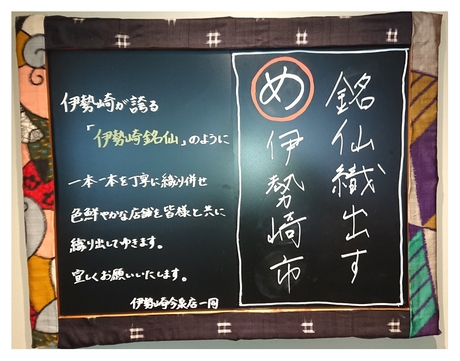 銘仙織出す
め伊勢崎市
伊勢崎が誇る
「伊勢崎銘仙」のように
一本一本を丁寧に織り併せ
色鮮やかな店舗を皆様と共に
織り出してゆきます。
宜しくお願いいたします。
伊勢崎今泉店一同